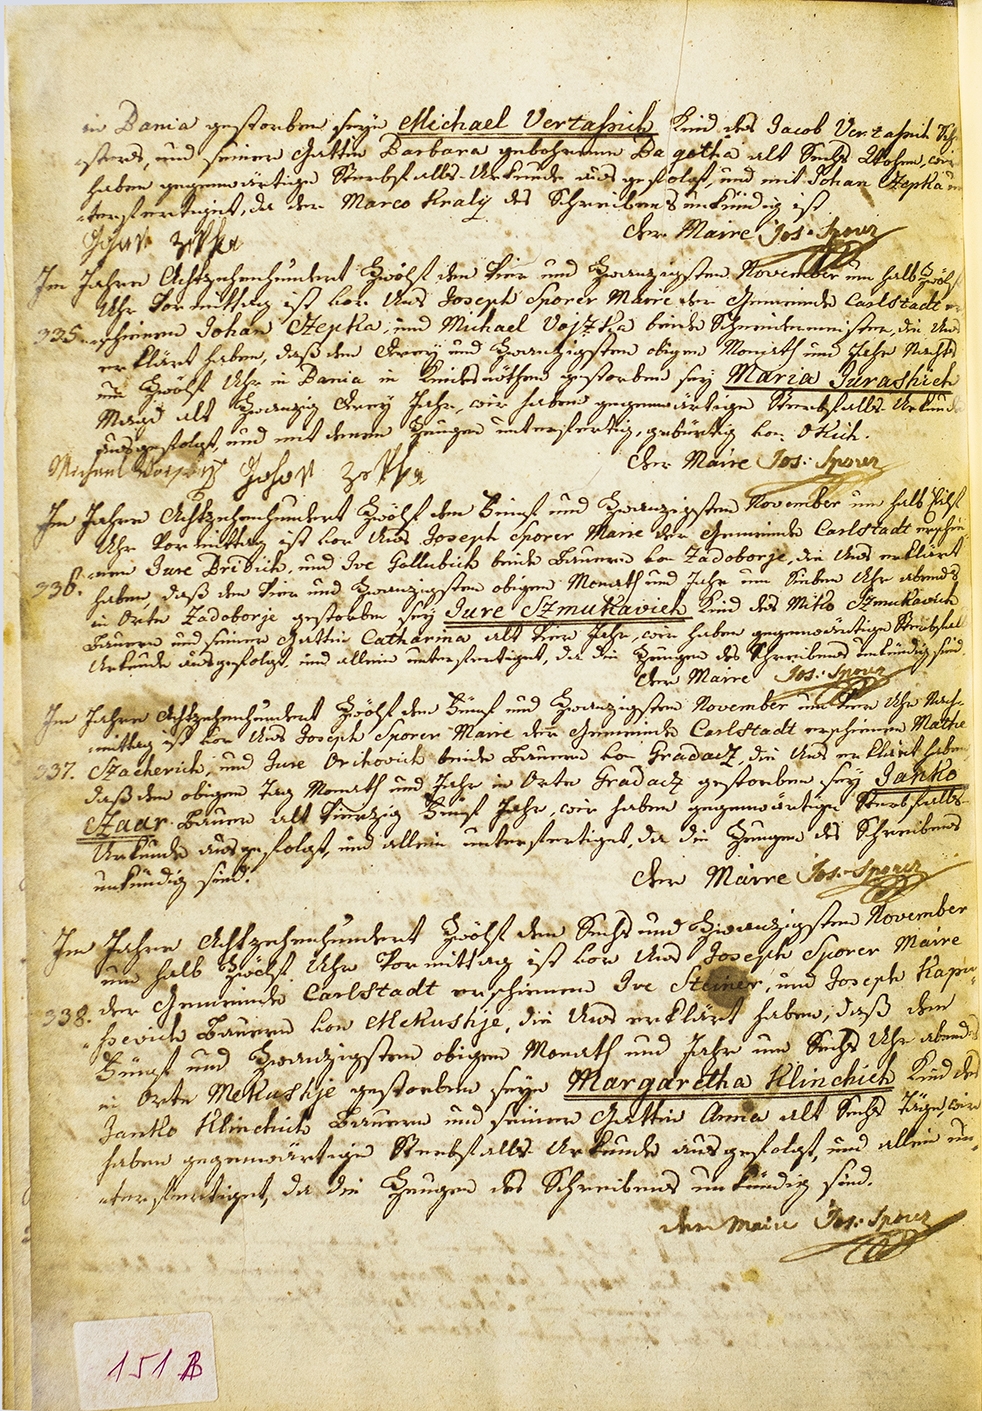 in Bania gestorben seye Michael Vertassich Kind des Jacob Vertassich
und seiner Gattin Barbara gebohrenen alt Sechs Wochen, wir
haben gegenwärtige Sterbfalls-Urkunde ausgefolgt, und mit Johan Czepka un-
terfertiget, da der Marco Kraly des Schreibens unkündig ist
der Maire Jos: Sporer
Im Jahre Achtzehenhundert Zwölf den Vier und Zwanzigsten November um halb Zwölf
Uhr Vormittag ist vor Uns Joseph Sporer Maire der Gemeinde Carlstadt er-
335. schienen Johan Czepka, und Michael Vojszka beide Schneidermeister, die Uns
erklärt haben, daß den Drey und Zwanzigsten obigen Monath und Jahr Nachts
um Zwölf Uhr in Bania in Kindsnöthen gestorben sey Maria Juraschich
Magd alt Zwanzig Drey Jahr, wir haben gegenwärtige Sterbfalls-Urkunde
ausgefolgt, und mit denen Zeugen unterfertig, gebürtig von Okich.
der Maire Jos: Sporer
Im Jahre Achtzehenhundert Zwölf den Fünf und Zwanzigsten November um halb Eilf
Uhr Vormittag ist vor Uns Joseph Sporer Maire der Gemeinde Carlstadt erschie-
336. nen Jure Bribich, und Ive Gollubich beide Bauern von Zadoborje, die Uns erklärt
haben, daß den Vier und Zwanzigsten obigen Monath und Jahr um Sieben Uhr abends
in Orte Zadoborje gestorben sey Jure Szmukavich Kind des Miko Szmukavich
Bauern und seiner Gattin Catharina alt Vier Jahr, wir haben gegenwärtige Sterbfal
Urkunde ausgefolgt, und allein unterfertiget, da die Zeugen des Schreibens unkündig sind.
der Maire Jos: Sporer
Im Jahre Achtzehenhundert Zwölf den Fünf und Zwanzigsten November um Vier Uhr Nach-
mittag ist vor Uns Joseph Sporer Maire der Gemeinde Carlstadt erschienen Mathe
337. Szacherich, und Jure Orihovich beide Bauern von Gradacz, die Uns erklärt haben
daß den obigen Tag Monath und Jahr in Orte Gradacz gestorben sey Janko
Czaar Bauer alt Vierzig Fünf Jahr, wir haben gegenwärtige Sterbfalls-
Urkunde ausgefolgt, und allein unterfertiget, da die Zeugen des Schreibens
unkündig sind.
der Maire Jos: Sporer
Im Jahre Achtzehenhundert Zwölf den Sechs und Zwanzigsten November
um halb Zwölf Uhr Vormittag ist vor Uns Joseph Sporer Maire
338. der Gemeinde Carlstadt erschienen Ive Steiner, und Joseph
Bauern von Mekushje, die Uns erklärt haben, daß den
Fünf und Zwanzigsten obigen Monath und Jahr um Sechs Uhr abends
in Orte Mekushje gestorben seye Margaretha Klinchich Kind des
Janko Klinchich Bauern und seiner Gattin Anna alt Sechs Täge, wir
haben gegenwärtige Sterbfalls-Urkunde ausgefolgt, und allein un-
terfertiget, da die Zeugen des Schreibens unkündig sind.
der Maire Jos: Sporer
151 B